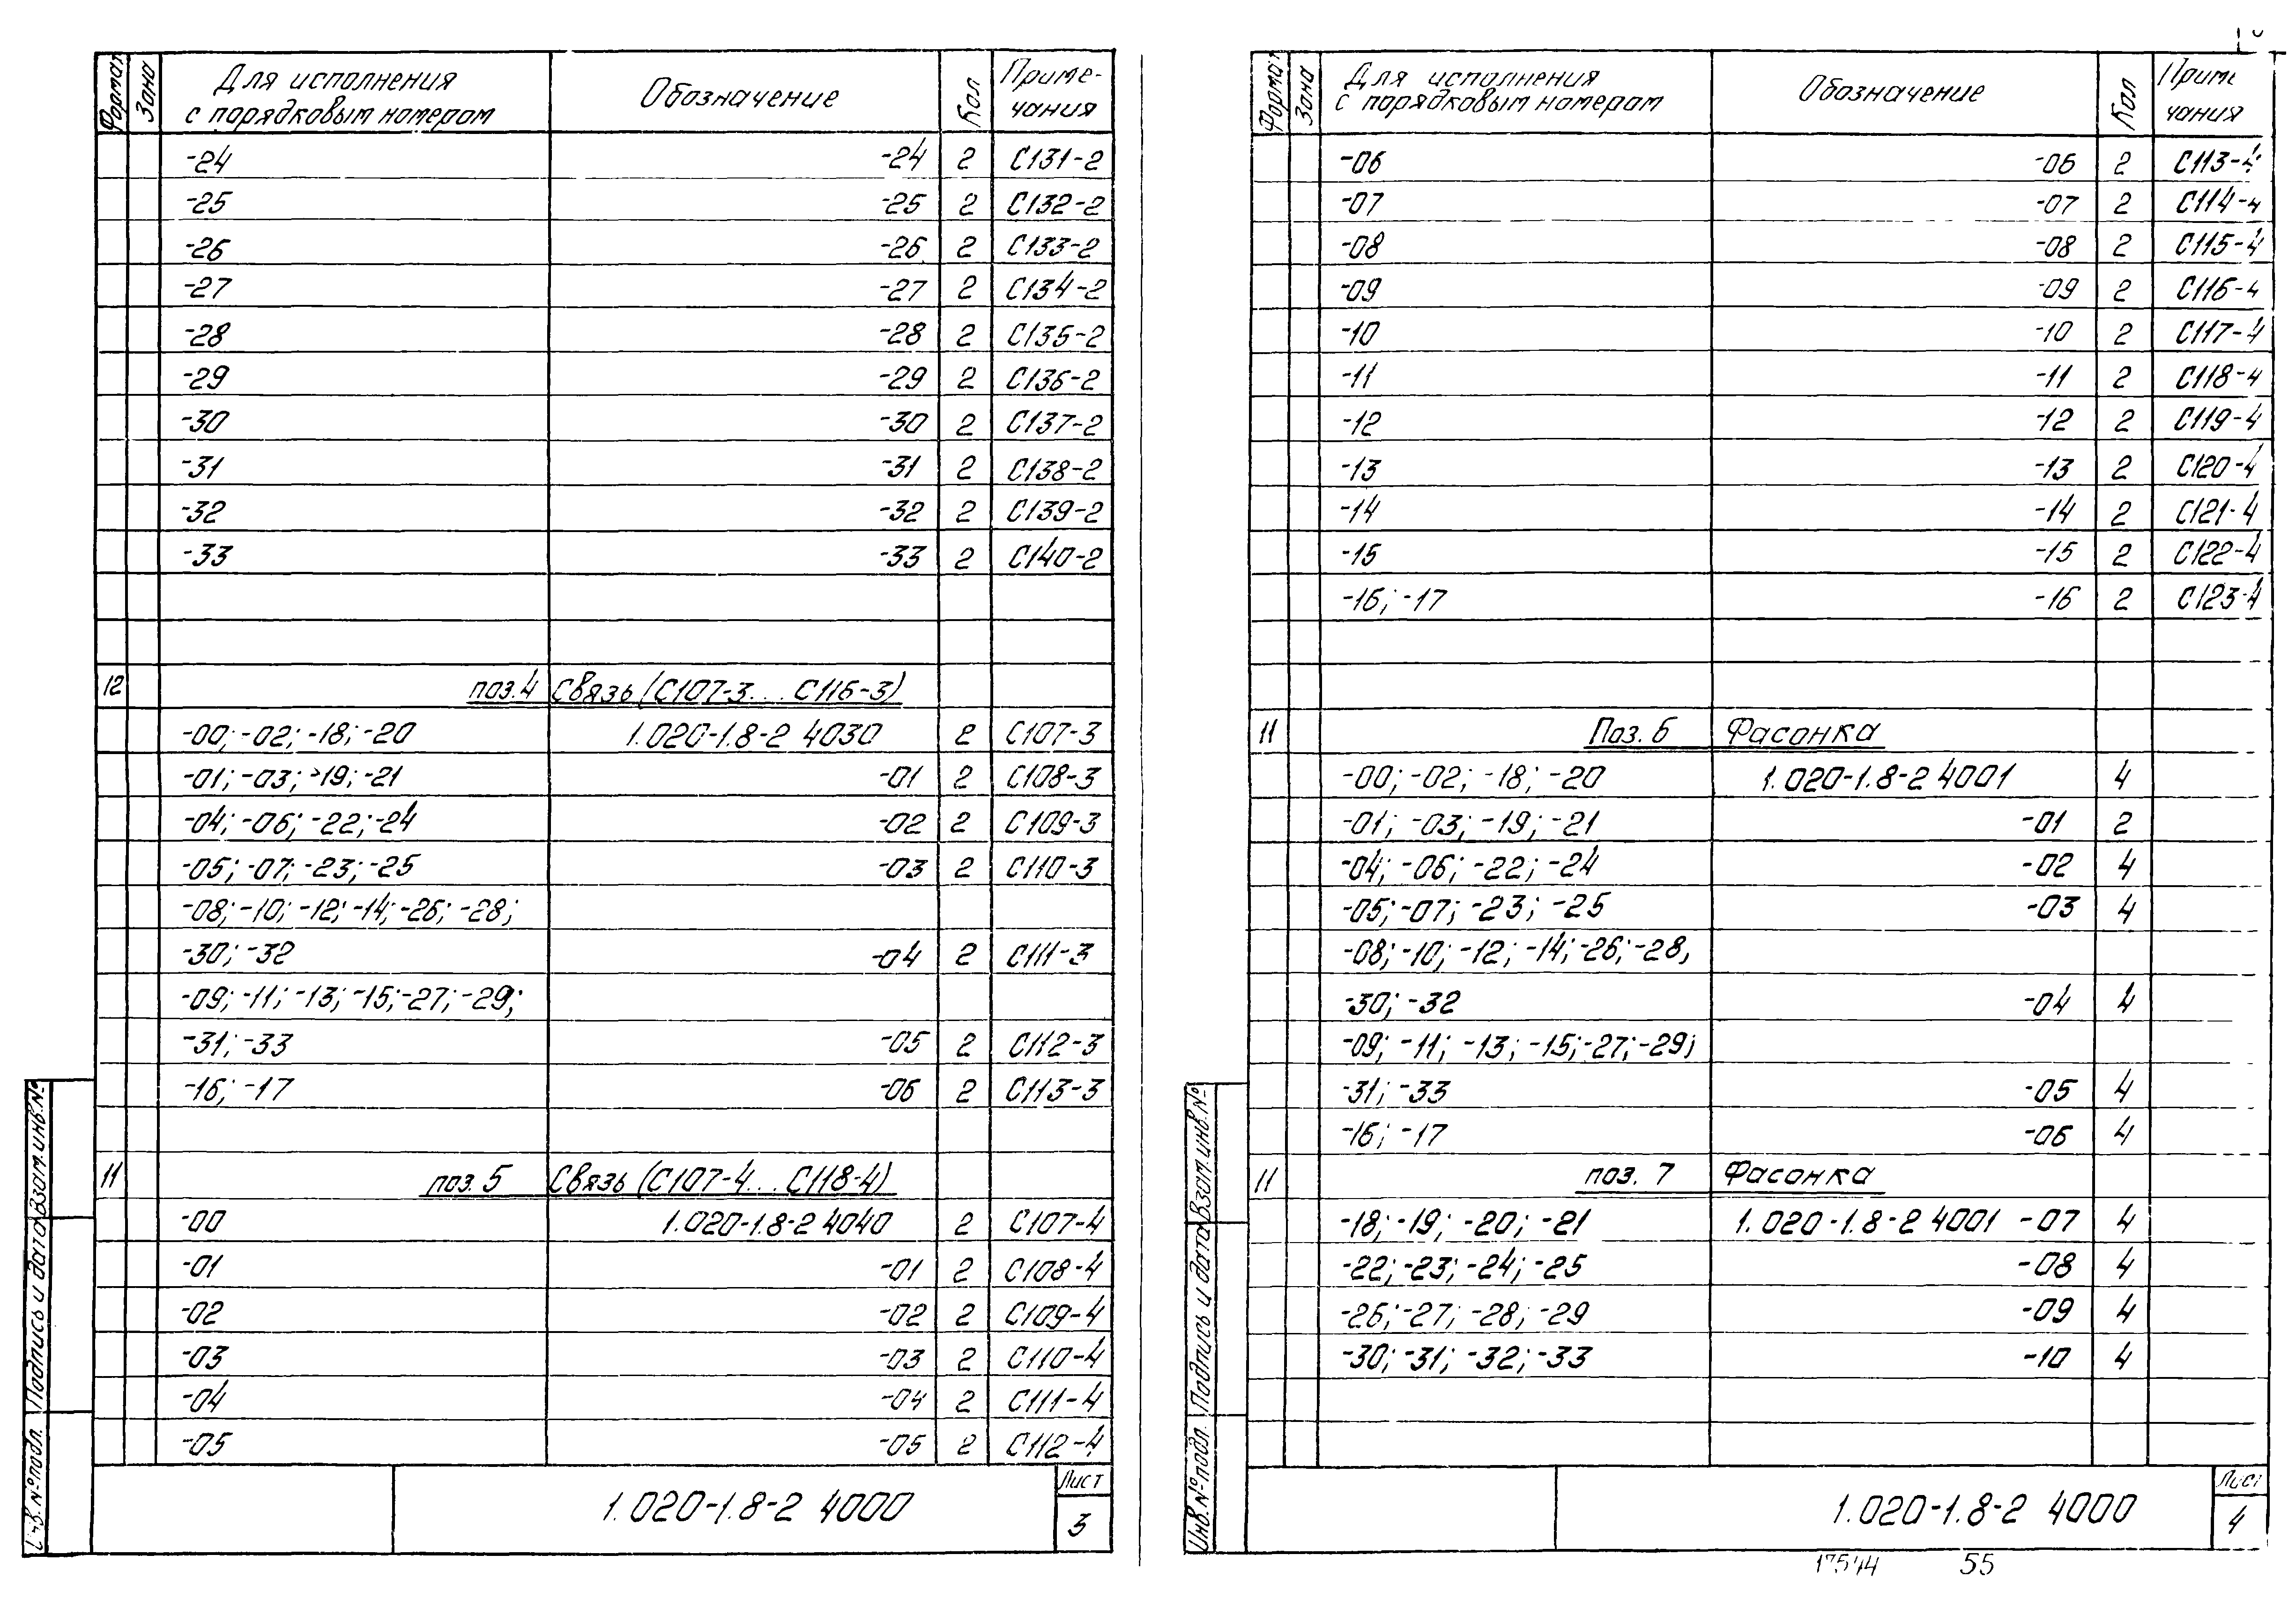 Формат Зона Для исполнения с порядковым номером Обозначение Кол Приме-чания
-24 -24 2 С131-2
-25 -25 2 С132-2
-26 -26 2 С133-2
-27 -27 2 С134-2
-28 -28 2 С135-2
-29 -29 2 С136-2
-30 -30 2 С137-2
-31 -31 2 С138-2
-32 -32 2 С139-2
-33 -33 2 С140-2
12 поз.4 Связь (С107-3...С116-3)
-00; -02; -18; -20 1.020-1.8-2 4030 2 С107-3
-01; -03; -19; -21 -01 2 С108-3
-04; -06; -22; -24 -02 2 С109-3
-05; -07; -23; -25 -03 2 С110-3
-08; -10; -12; -14; -26; -28;
-30; -32 -04 2 С111-3
-09; -11; -13; -15; -27; -29;
-31; -33 -05 2 С112-3
-16; -17 -06 2 С113-3
11 поз. 5 Связь (С107-4...С118-4)
-00 1.020-1.8-2 4040 2 С107-4
-01 -01 2 С108-4
-02 -02 2 С109-4
-03 -03 2 С110-4
-04 -04 2 С111-4
-05 -05 2 С112-4
Подпись и дата Взам.инв.№
1.020-1.8-2 4000
Лист
3
Формат Зона Для исполнения с порядковым номером Обозначение Кол чания
-06 -06 2 С113-4
-07 -07 2 С114-4
-08 -08 2 С115-4
-09 -09 2 С116-4
-10 -10 2 С117-4
-11 -11 2 С118-4
-12 -12 2 С119-4
-13 -13 2 С120-4
-14 -14 2 С121-4
-15 -15 2 С122-4
-16; -17 -16 2 С123-4
11 Поз. 6 Фасонка
-00; -02; -18; -20 1.020-1.8-2 4001 4
-01; -03; -19; -21 -01 2
-04; -06; -22; -24 -02 4
-05; -07; -23; -25 -03 4
-08; -10; -12; -14; -26; -28,
-30; -32 -04 4
-09; -11; -13; -15; -27; -29;
-31; -33 -05 4
-16; -17 -06 4
11 поз. 7 Фасонка
-18; -19; -20; -21 1.020-1.8-2 4001 -07 4
-22; -23; -24; -25 -08 4
-26; -27; -28; -29 -09 4
-30; -31; -32; -33 -10 4
Инв.№подл. Подпись и дата Взам.инв.№
1.020-1.8-2 4000
Лист
4
17544 55